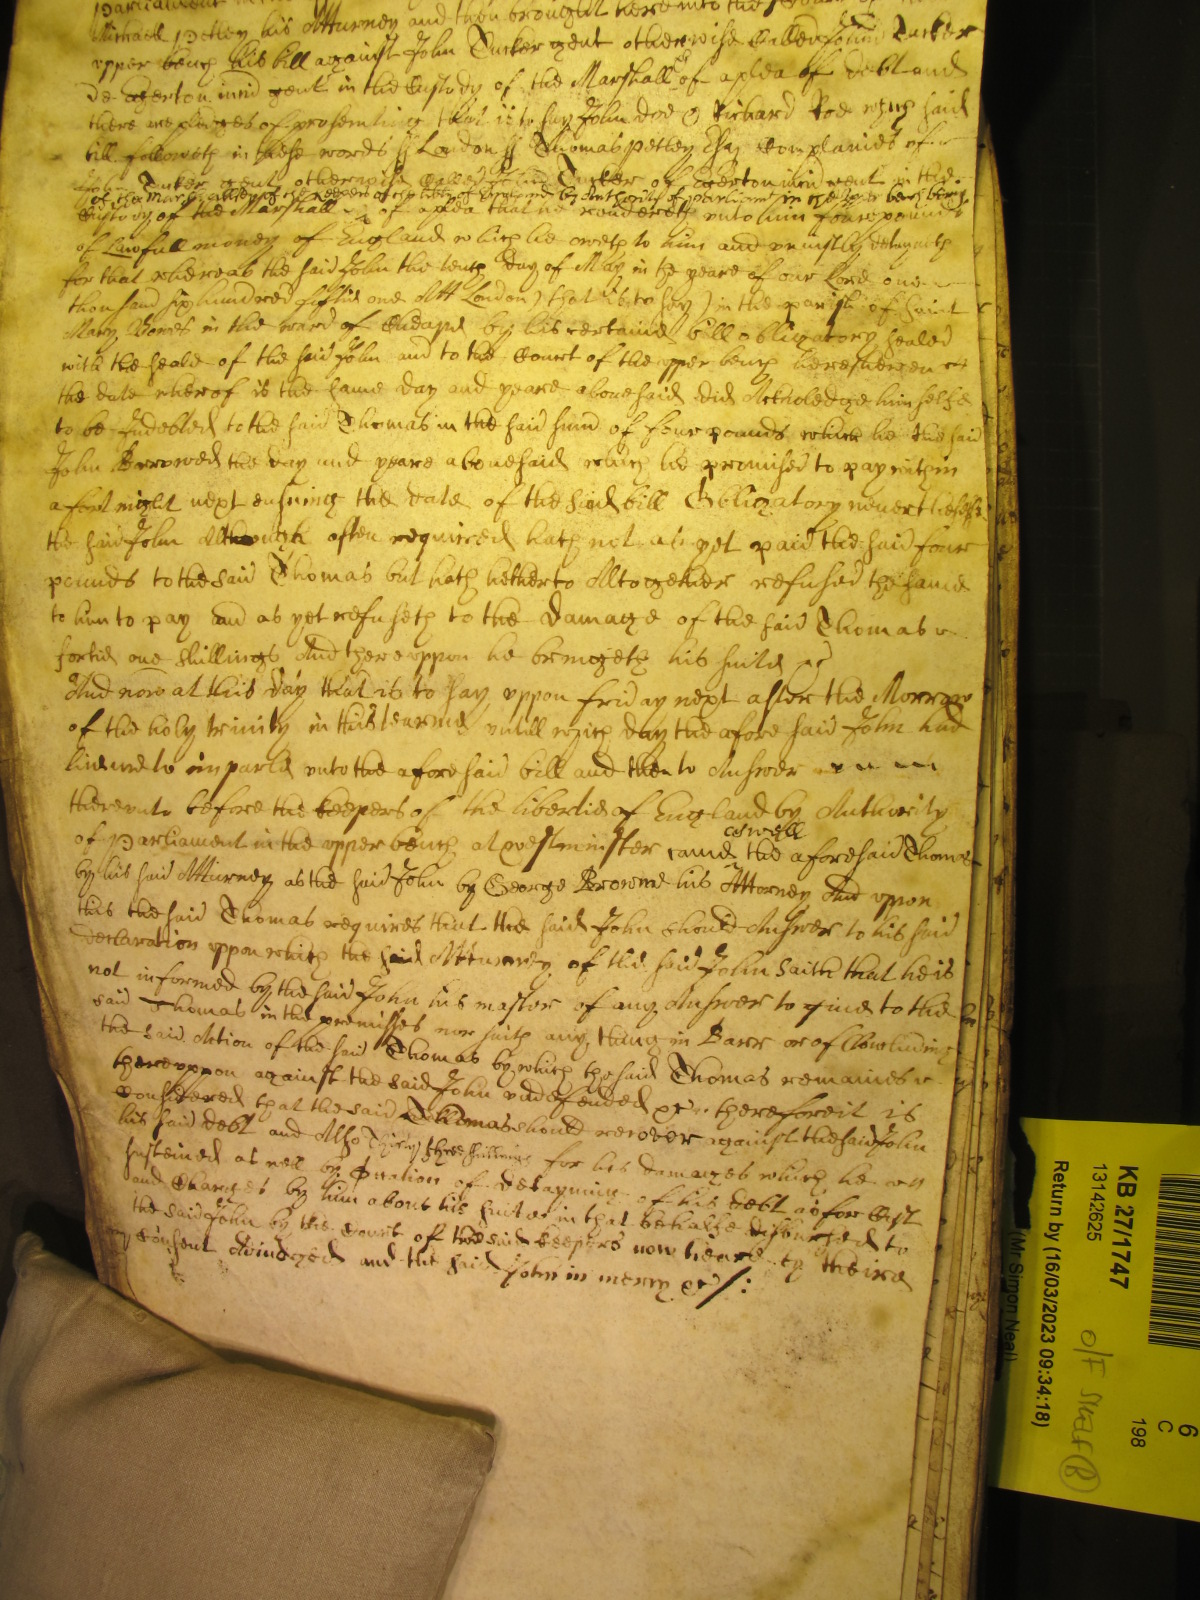 Michaell Petley his Atturney and then brought here into the
upper bench his bill against John Tucker gent otherwise Called John Tucker
de Egerton in gent in the Custody of the Marshall of a plea of debt and
there are pledges of prosecuting that is to say John doe & Richard Roe which said
bill followeth in these words ss London ss Thomas Petley Esq Complaines of
John Tucker gent otherwise Called John Tucker of Egerton in gent in the
of the Marshallsey of the keepers of the liberty of England by Authority of parliament in the upper bench being
Custody of the Marshall of a plea that he rendereth unto him foure pounds
of lawfull money of England which he oweth to him and uniustly detayneth
for that whereas the said John the tenth day of May in the yeare of our Lord one
thousand six hundred fiftie one Att London that is to say in the parish of Saint
Mary Bowe in the ward of Cheape by his certaine bill obligatory sealed
with the seale of the said John and to the Court of the upper bench here shewen
the date wherof is the same day and yeare abovesaid did Acknoledge himselfe
to be Indebted to the said Thomas in the said sum of foure pounds which he the said
John Borrowed the day and yeare abovesaid which he promised to pay within
a fortnight next ensuing the date of the said bill Obligatory neverthelesse
the said John Although often required hath not as yet paid the said foure
pounds to the said Thomas but hath hetherto Altogether refused the same
to him to pay and as yet refuseth to the damage of the said Thomas
fortie one shillings And thereuppon he bringeth his suite &c
And now at this day that is to say uppon friday next after the Morrow
of the holy trinity in this tearme untill which day the afore said John had
licence to imparle unto the aforesaid bill and then to Answer
thereunto before the keepers of the libertie of England by Authority
of Parliament in the upper bench at westminster came aswell the aforesaid Thomas
by his said Atturney as the said John by George Browne his Attorney And uppon
this the said Thomas requires that the said John should Answer to his said
declaration uppon which the said Atturney of the said John saith that he is
not informed by the said John his master of any Answer to give to the
said Thomas in the premisses nor saith any thing in Barr or of Concluding
the said Action of the said Thomas by which the said Thomas remaines
thereuppon against the said John undefended &c therefore it is
Considered that the said Thomas should recover against the said John
his said debt and Also Thirty three shillings for his damages which he
susteined as well by Occation of detayning of his debt as for Cost
and Charges by him about his suite in that behalfe disbursed to
the said John by the Court of the said keepers now heare by theire
Consent Adiudged and the said John in mercy &c
KB 27/1747
13142625
Return by (16/03/2023 09:34:18)
(Mr Simon Neal)
6
C
198